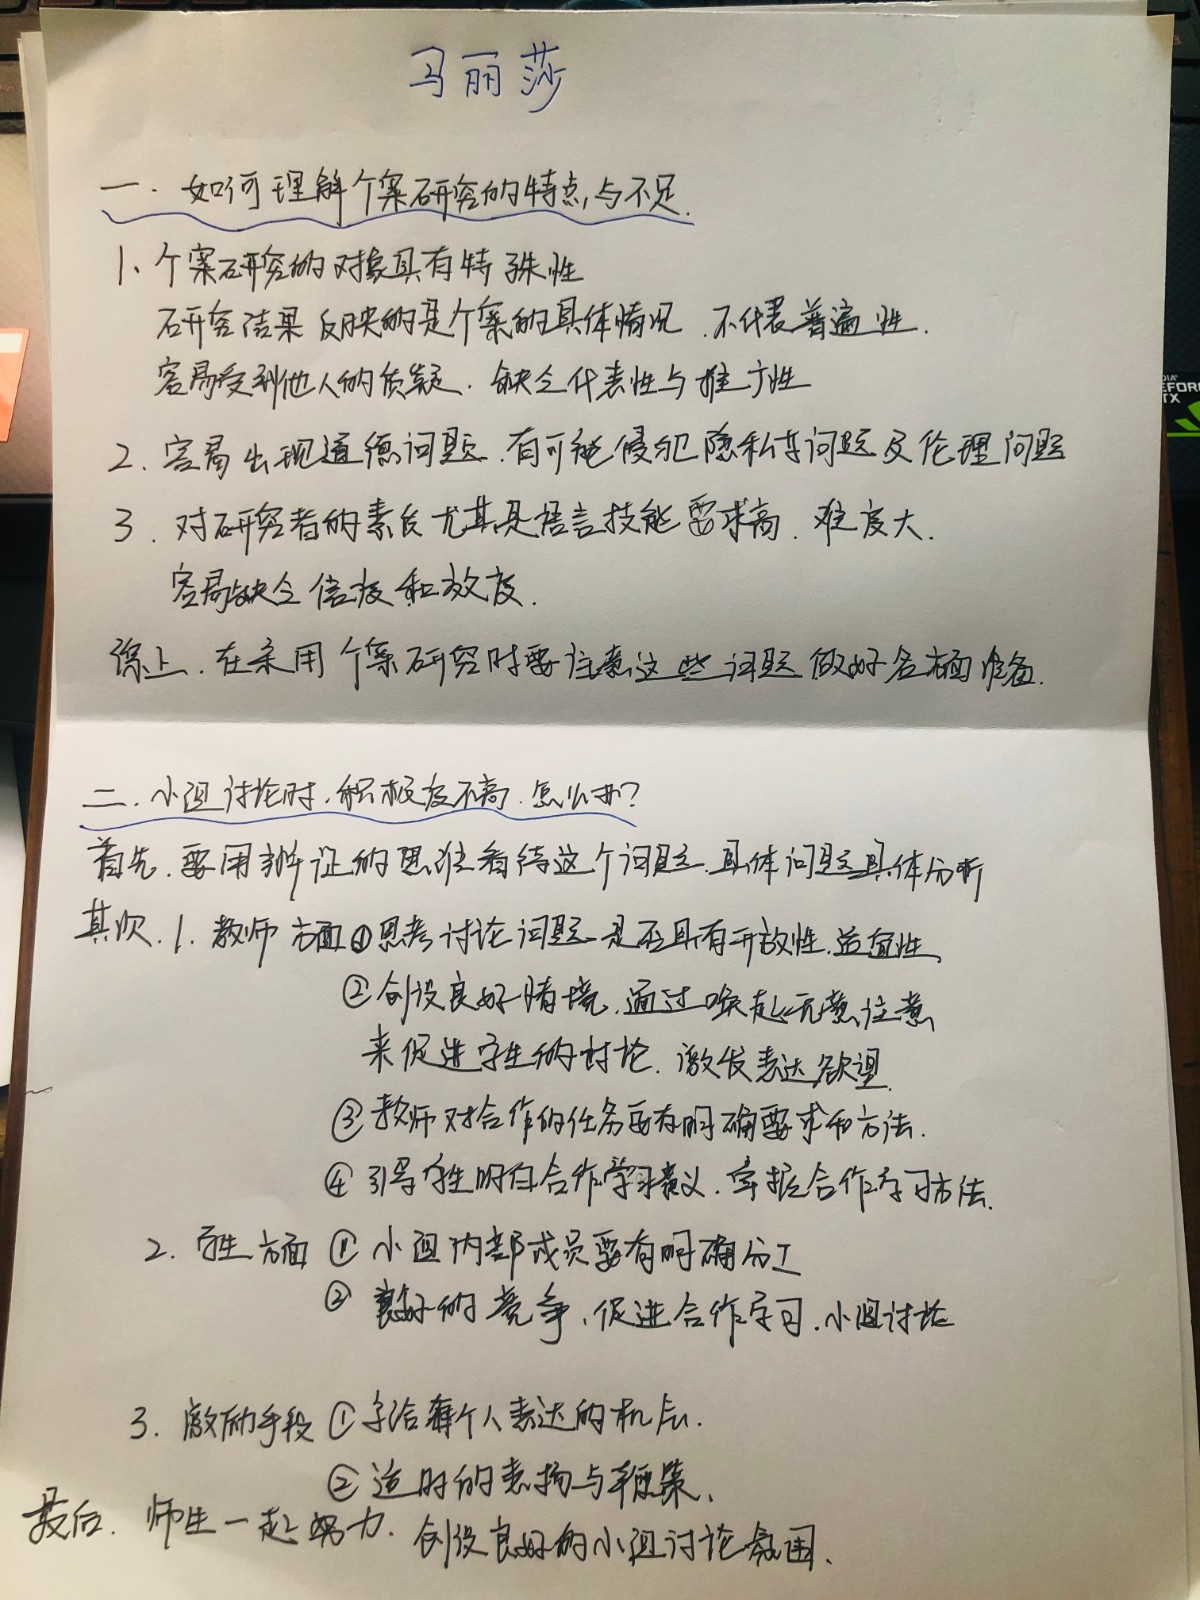 马丽莎
一. 如何理解个案研究的特点与不足.
1、个案研究的对象具有特殊性
研究结果反映的是个案的具体情况.不代表普遍性.
容易受到他人的质疑.缺乏代表性与推广性
2.容易出现道德问题.有可能侵犯隐私等问题及伦理问题
3.对研究者的素质尤其是语言技能要求高.难度大.
容易缺乏信度和效度.
综上.在采用个案研究时要注意这些问题做好各方面准备.
二.小组讨论时.积极度不高.怎么办?
首先.要用辨证的思维看待这个问题.具体问题具体分析
其次.1.教师方面①思考讨论问题是否具有开放性.适宜性、
②创设良好情境.通过唤起无意注意
来促进学生的讨论.激发表达欲望.
③教师对合作的任务要有明确要求和方法.
④引导学生明白合作学习意义.掌握合作学习方法.
2.学生方面①小组内部成员要有明确分工
②良好的竞争、促进合作学习.小组讨论
3.激励手段①予给每个人表达的机会.
②适时的表扬与鞭策、
最后.师生一起努力.创设良好的小组讨论氛围、
DIA
EFOR
TX